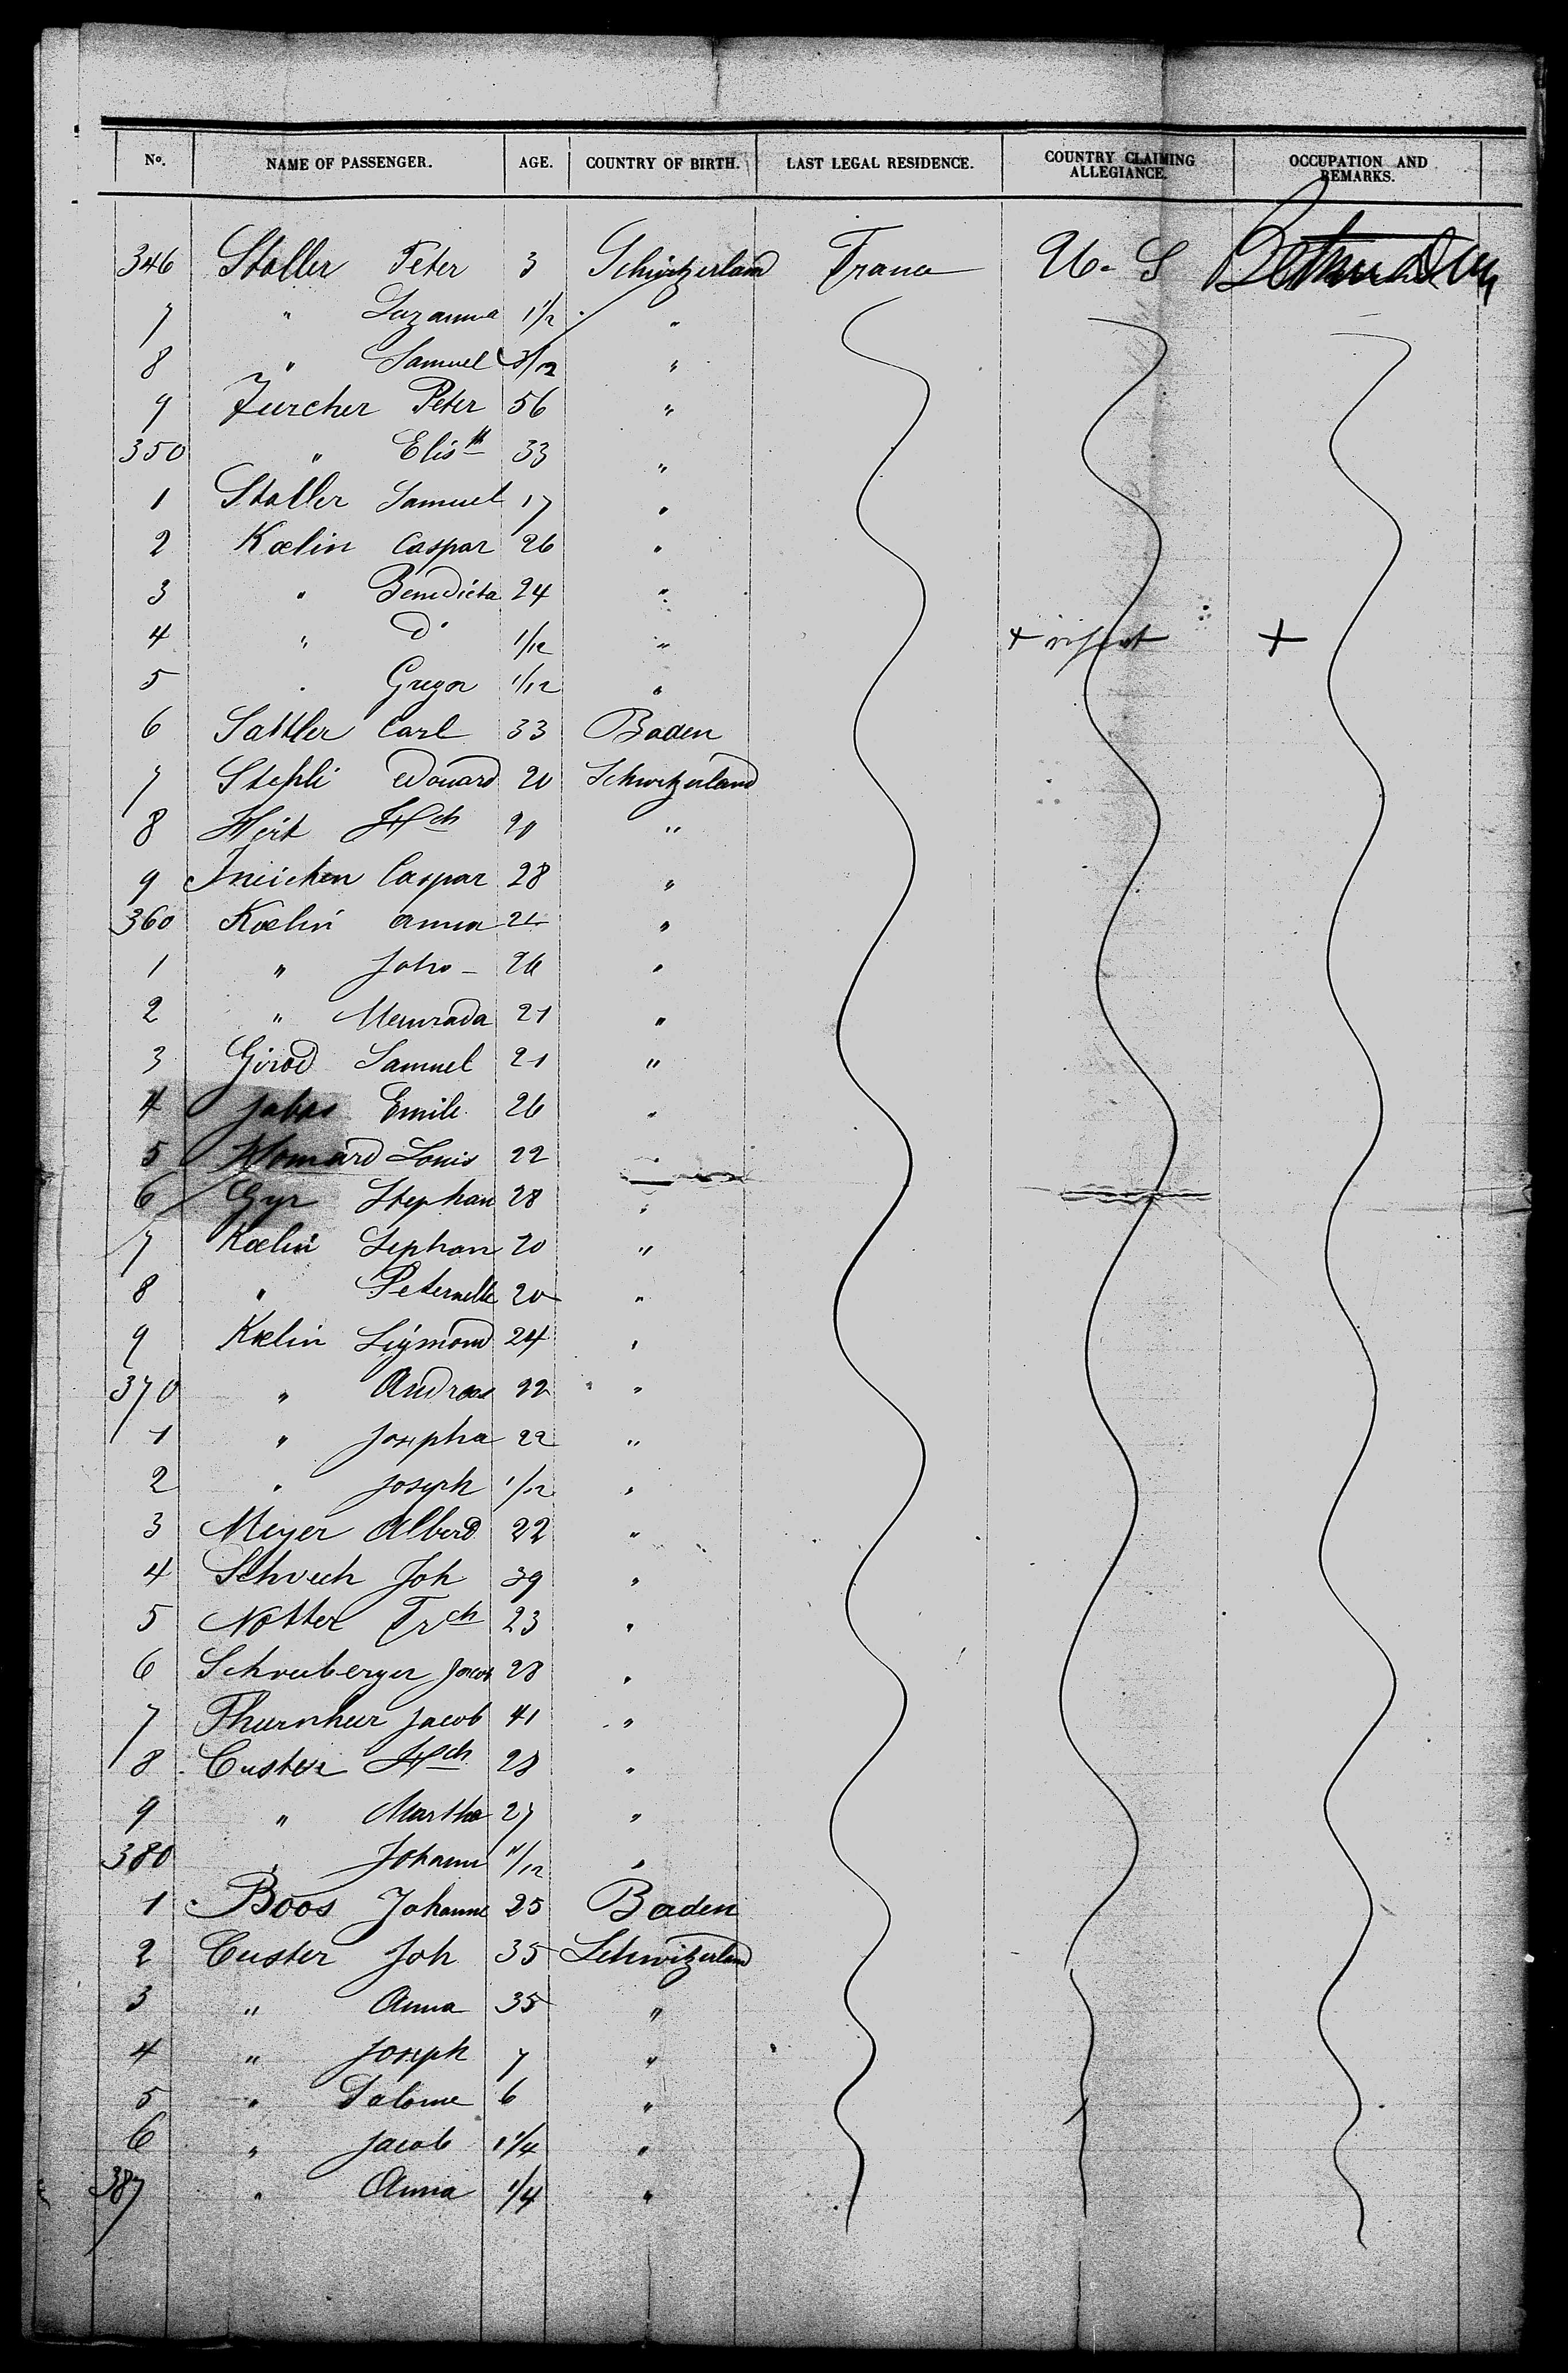 No. NAME OF PASSENGER. AGE. COUNTRY OF BIRTH. LAST LEGAL RESIDENCE. COUNTRY CLAIMING ALLEGIANCE. OCCUPATION AND REMARKS.
346 Staller Peter 3 Schwitzerland France U. S
7 " Suzanna 1 1/2 "
8 " Samuel 3/12 "
9 Zurcher Peter 56 "
350 " Elisth 33 "
1 Staller Samuel 17 "
2 Kœlin Caspar 26 "
3 " Benedicta 24 "
4 " do 1/12 " + +
5 " Gregor 1/12 "
6 Sattler Carl 33 Baden
7 Stehli Edouard 20 Schwitzerland
8 Hirt Hch 21 "
9 Ineichen Caspar 28 "
360 Kœlin Anna "
1 " Joho 26 "
2 " Meinrada 21 "
3 Girod Samuel 21 "
4 Emile 26 "
5 Louis 22 "
6 Gyr Stephan 28 "
7 Kœlin Sephan 20 "
8 " Peternelle 20 "
9 Kœlin Sigmond 24 "
370 " Andreas 22 "
1 " Josepha 22 "
2 " Joseph 1/12 "
3 Meyer Alberd 22 "
4 Joh 39 "
5 Notter Frch 23 "
6 Jacob 28 "
7 Thurnheer Jacob 41 "
8 Custer Hch 28 "
9 " Martha 27 "
380 " Johann 11/12 "
1 Boos Johanne 25 Baden
2 Custer Joh 35 Schwitzerland
3 " Anna 35 "
4 " Joseph 7 "
5 " Salome 6 "
6 " Jacob 1 1/4 "
387 " Anna 1/4 "